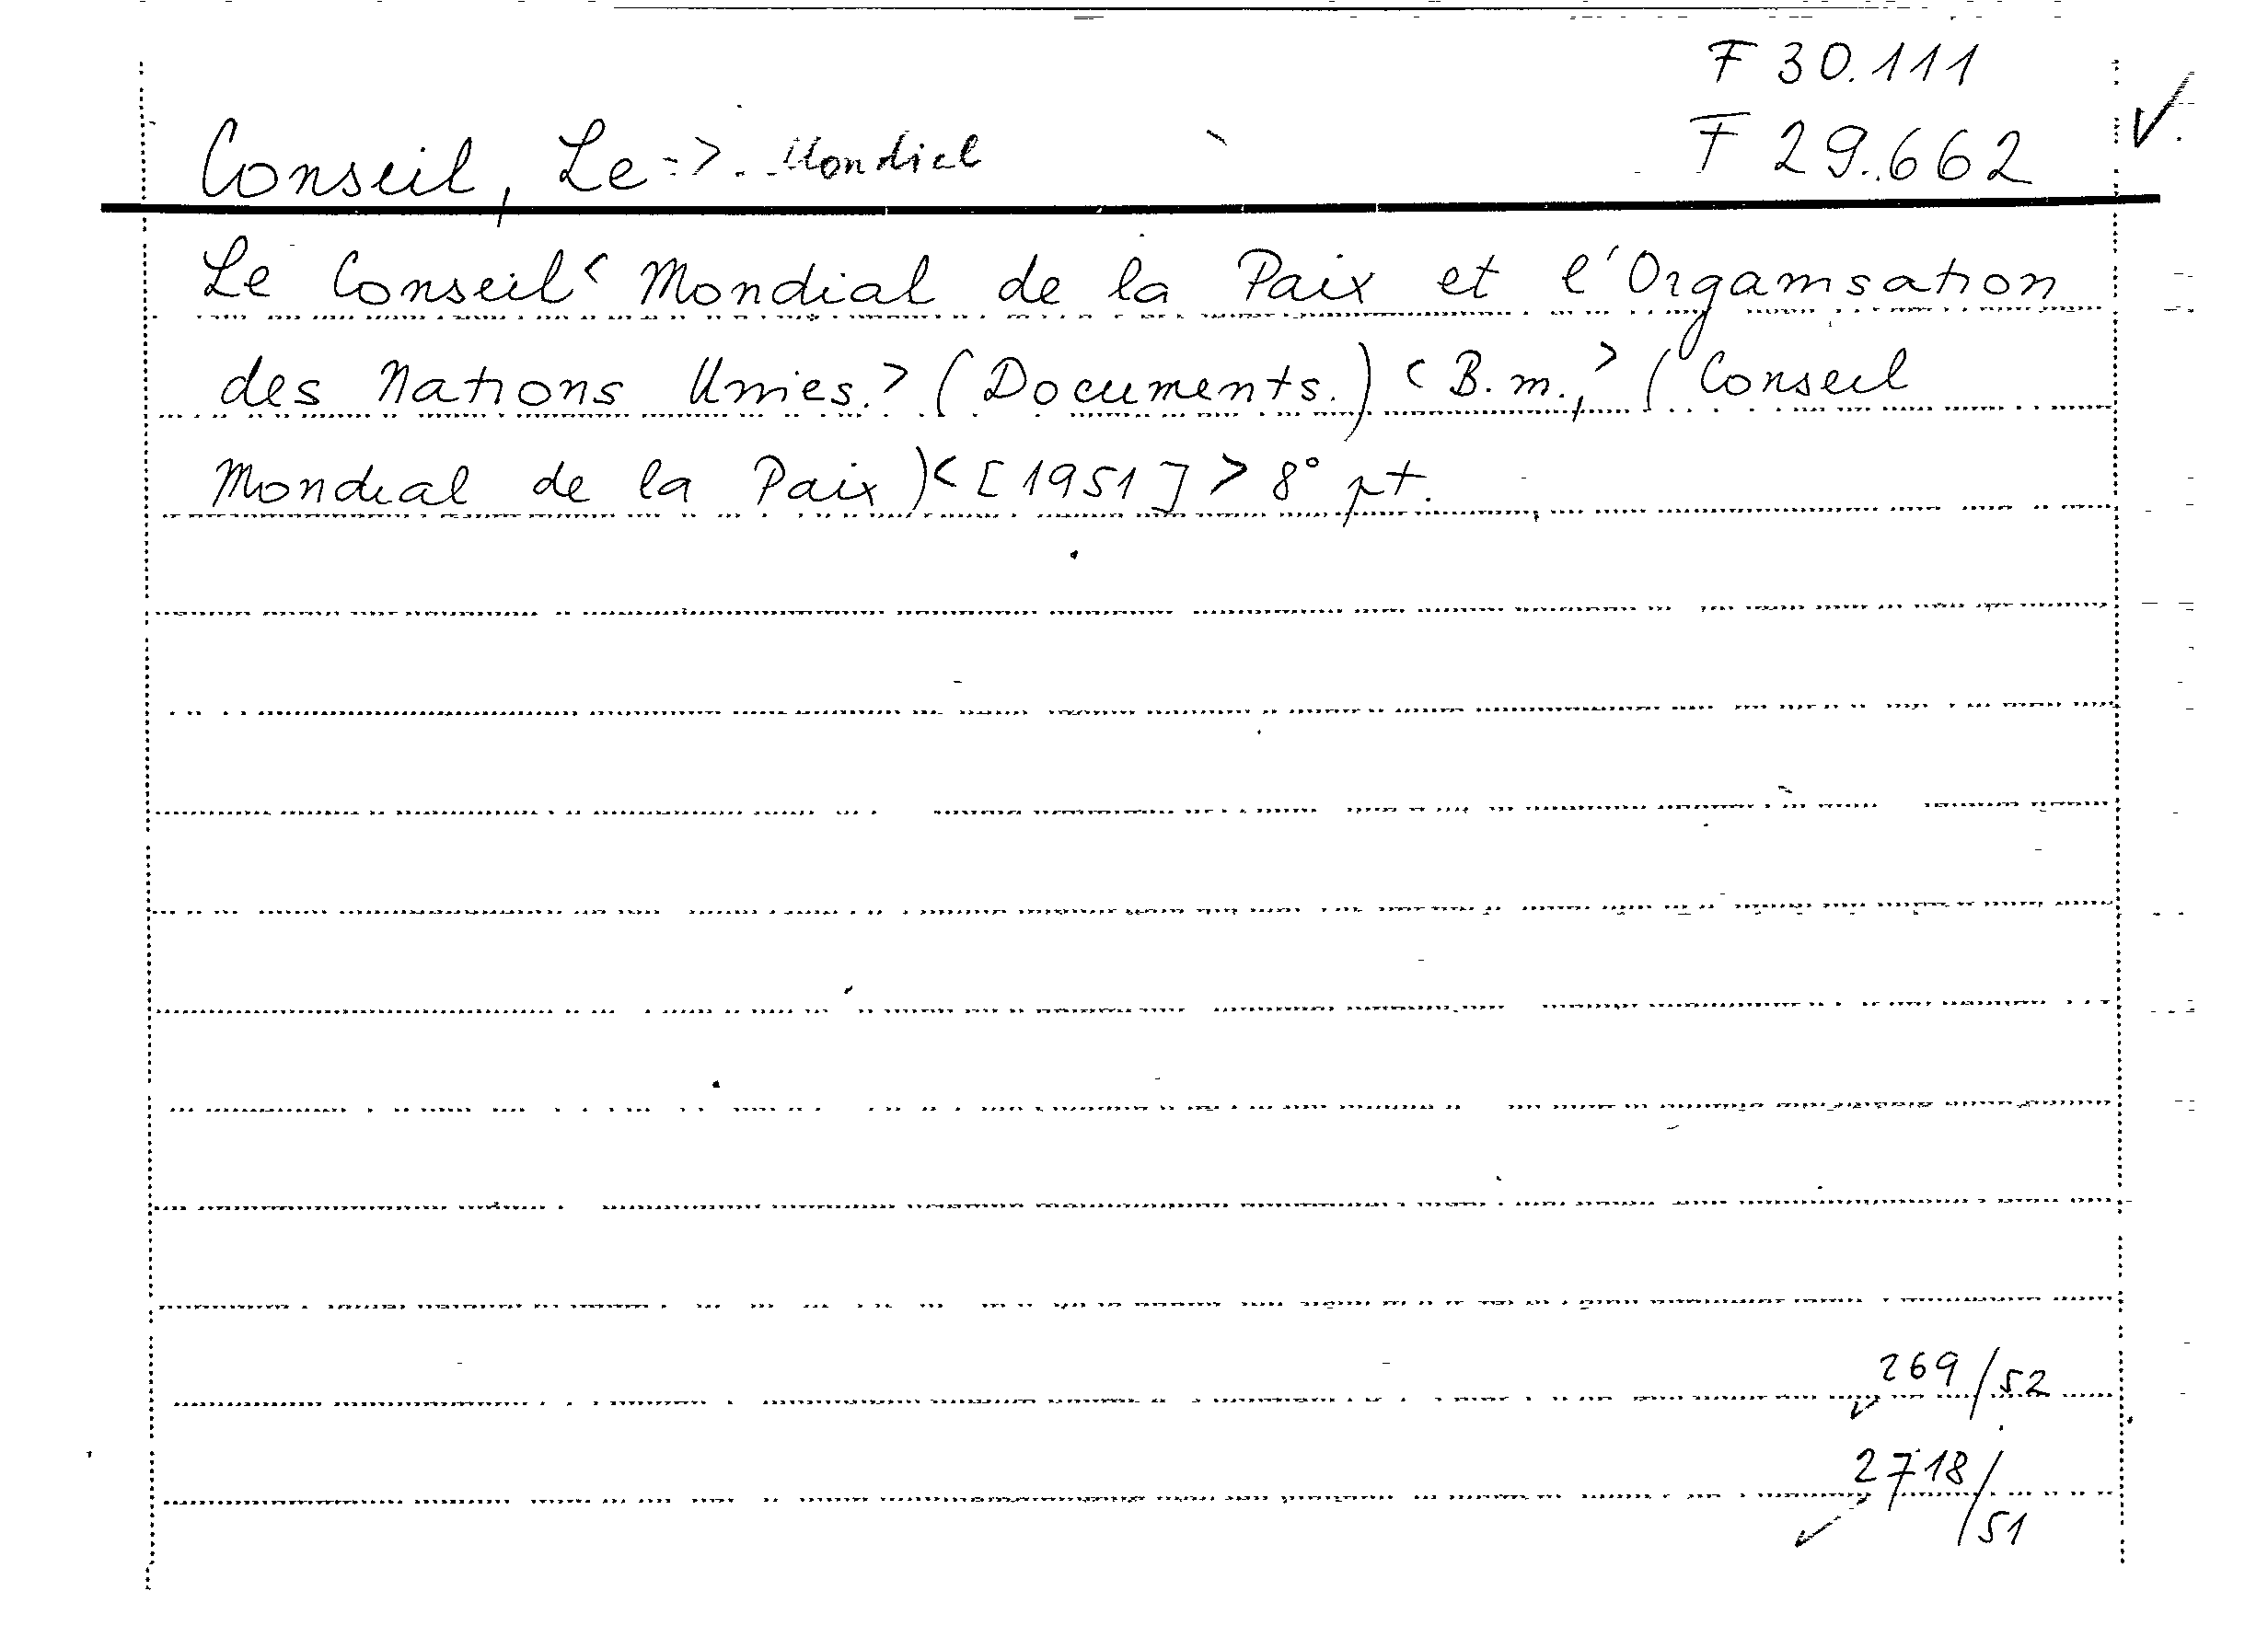 F 30.111
Conseil, Le => Mondial F 29.662 ✓
Le Conseil < Mondial de la Paix et l'Organisation
des Nations Unies. > (Documents.) < B. m., > (Conseil
Mondial de la Paix) < [1951] > 8° pt.
269/52
2718/51